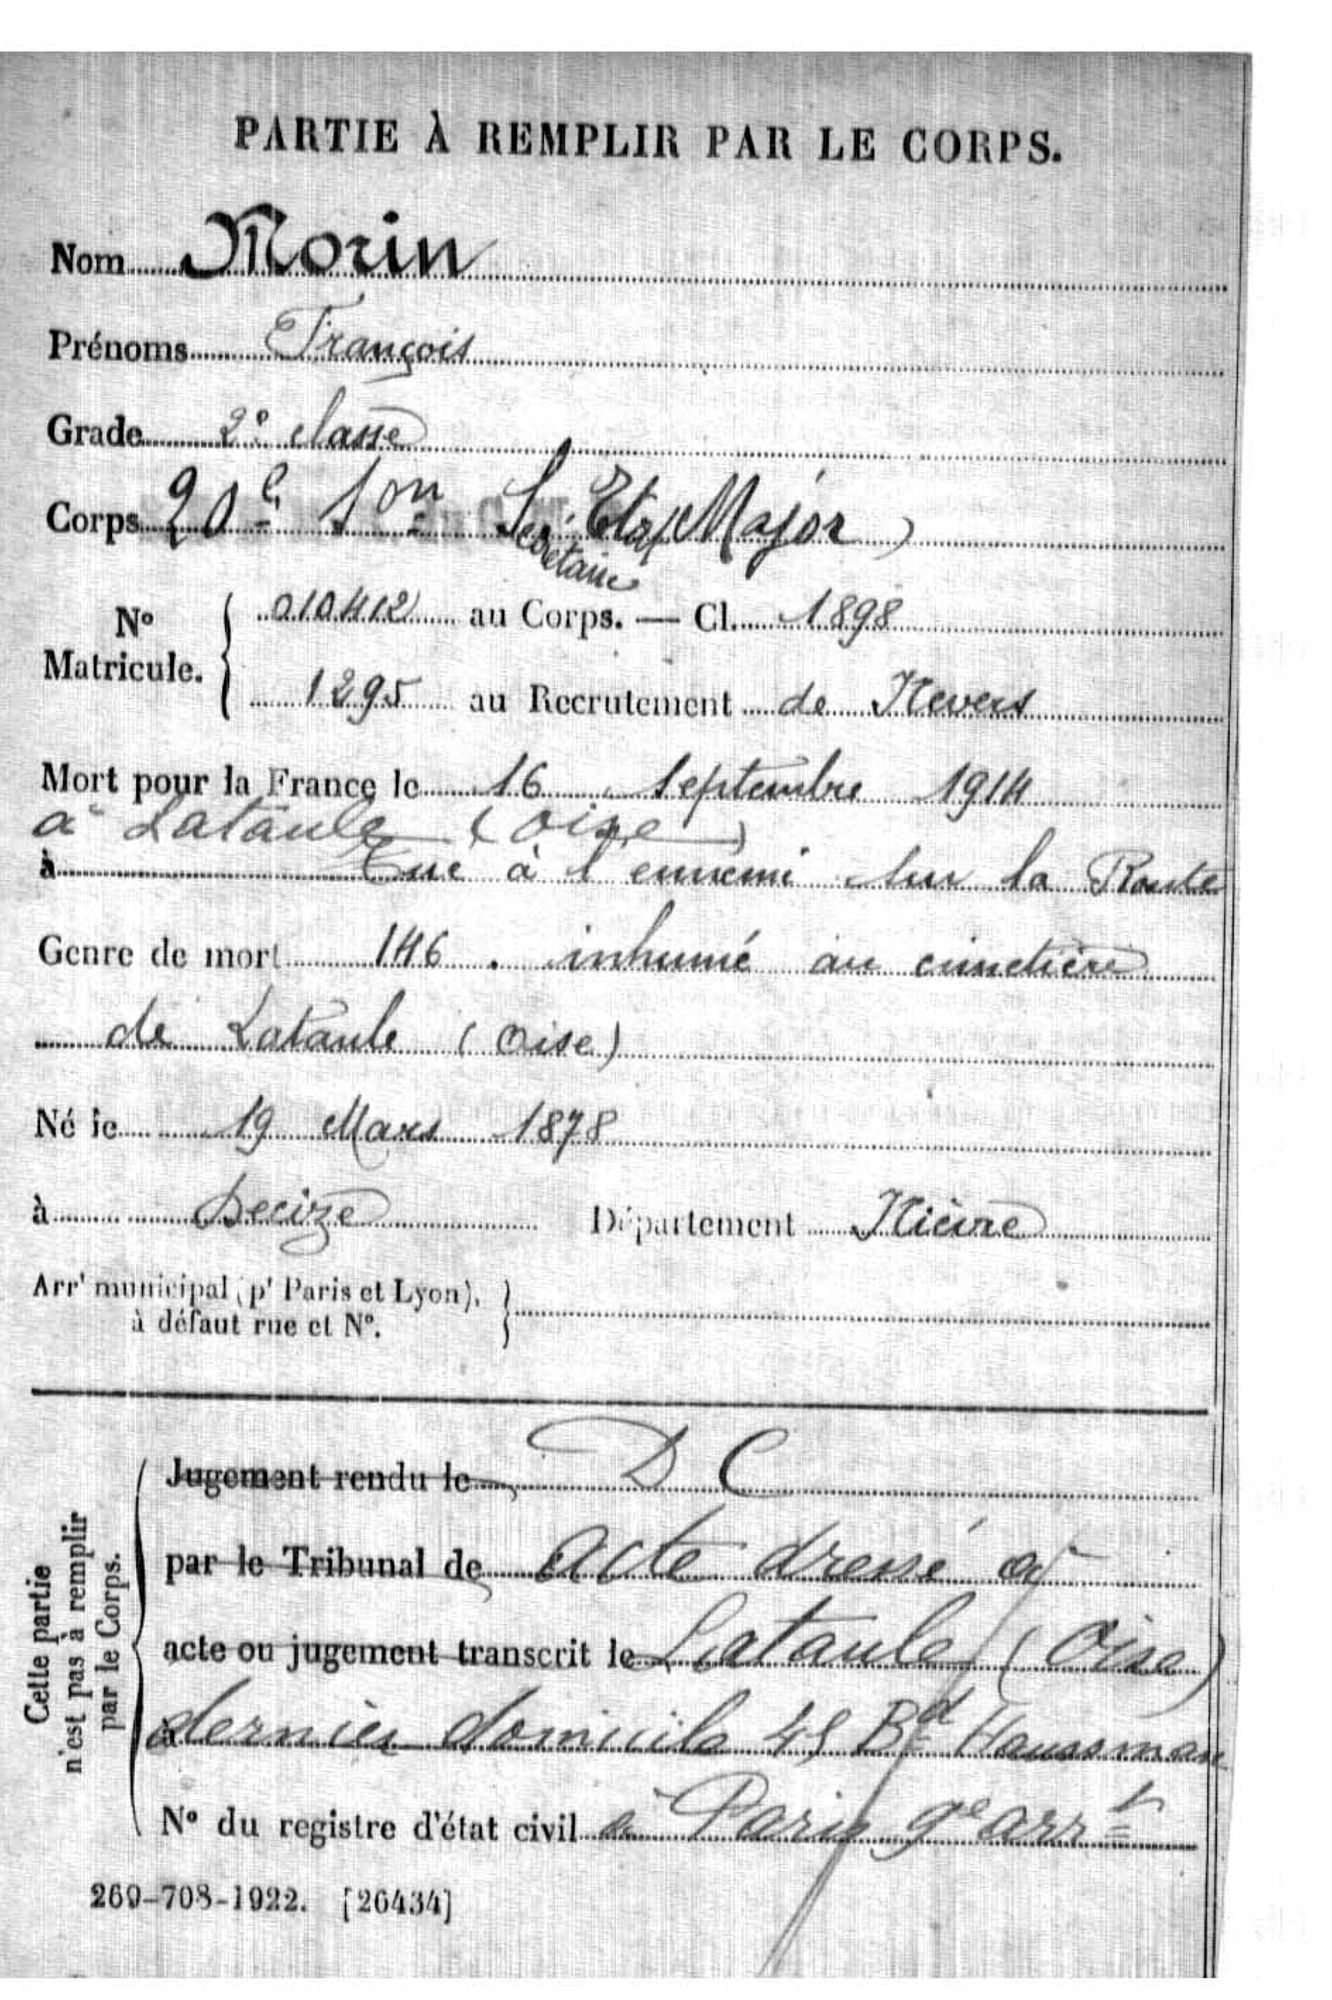 PARTIE À REMPLIR PAR LE CORPS.
Nom Morin
Prénoms François
Grade 2e classe
Corps 20e Son Secrétaire Etat Major
No Matricule. 010412 au Corps. — Cl. 1898
1295 au Recrutement de Nevers
Mort pour la France le 16 Septembre 1914
à Lataule (Oise)
à Tué à l'ennemi sur la Route
Genre de mort 146 . inhumé au cimetière
de Lataule (Oise)
Né le 19 Mars 1878
à Decize Département Nièvre
Arrt municipal (pr Paris et Lyon),
à défaut rue et No.
Cette partie
n'est pas à remplir
par le Corps.
Jugement rendu le D C
par le Tribunal de acte dressé à
acte ou jugement transcrit le Lataule (Oise)
à dernier domicile 45 Bd Haussman
No du registre d'état civil à Paris 9e arrt
269-708-1922. [26434]